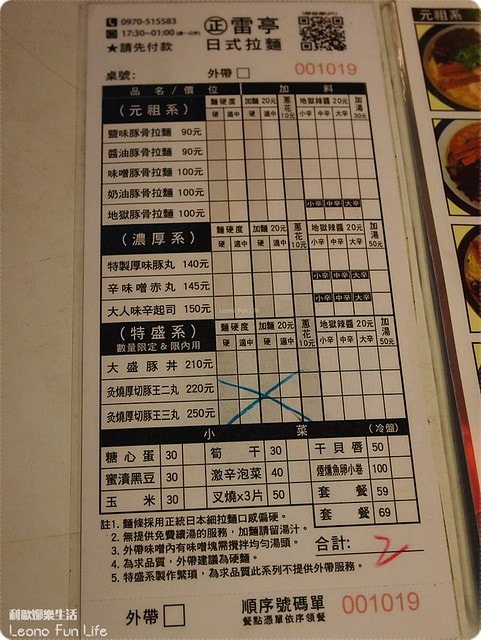 0970-515583
17:30~01:00
★請先付款
㊣雷亭
日式拉麵
順序號碼單
桌號:
外帶□
001019
品名/價位
加料
(元祖系)
麵硬度 加麵20元 蔥花10元 地獄辣醬20元 加湯30元
硬 適中 硬 適中 小辛 中辛 大辛
鹽味豚骨拉麵 90元
醬油豚骨拉麵 90元
味噌豚骨拉麵 100元
奶油豚骨拉麵 100元
地獄豚骨拉麵 100元 小辛 中辛 大辛
(濃厚系)
麵硬度 加麵20元 蔥花10元 地獄辣醬20元 加湯50元
硬 適中 硬 適中 小辛 中辛 大辛
特製厚味豚丸 140元
辛味噌赤丸 145元 小辛 中辛 大辛
大人味辛起司 150元 小辛 中辛 大辛
(特盛系)
數量限定&限內用
麵硬度 加麵20元 蔥花10元 地獄辣醬20元 加湯50元
硬 適中 硬 適中 小辛 中辛 大辛
大盛豚丼 210元
炙燒厚切豚王二丸 220元
炙燒厚切豚王三丸 250元
小菜
(冷盤)
糖心蛋 30 筍干 30 干貝唇 50
蜜漬黑豆 30 激辛泡菜 40 煙燻魚卵小卷 100
玉米 30 叉燒x3片 50 套餐 59
套餐 69
註1. 麵條採用正統日本細拉麵口感偏硬。
2. 無提供免費續湯的服務,加麵請留湯汁。
3. 外帶味噌內有味噌塊需攪拌均勻湯頭。
4. 為求品質,外帶建議為硬麵。
5. 特盛系製作繁瑣,為求品質此系列不提供外帶服務。
合計: 2
外帶□
順序號碼單
餐點憑單依序領餐
001019
元祖系
Leono Fun Life
利歐娜樂生活
Leono Fun Life